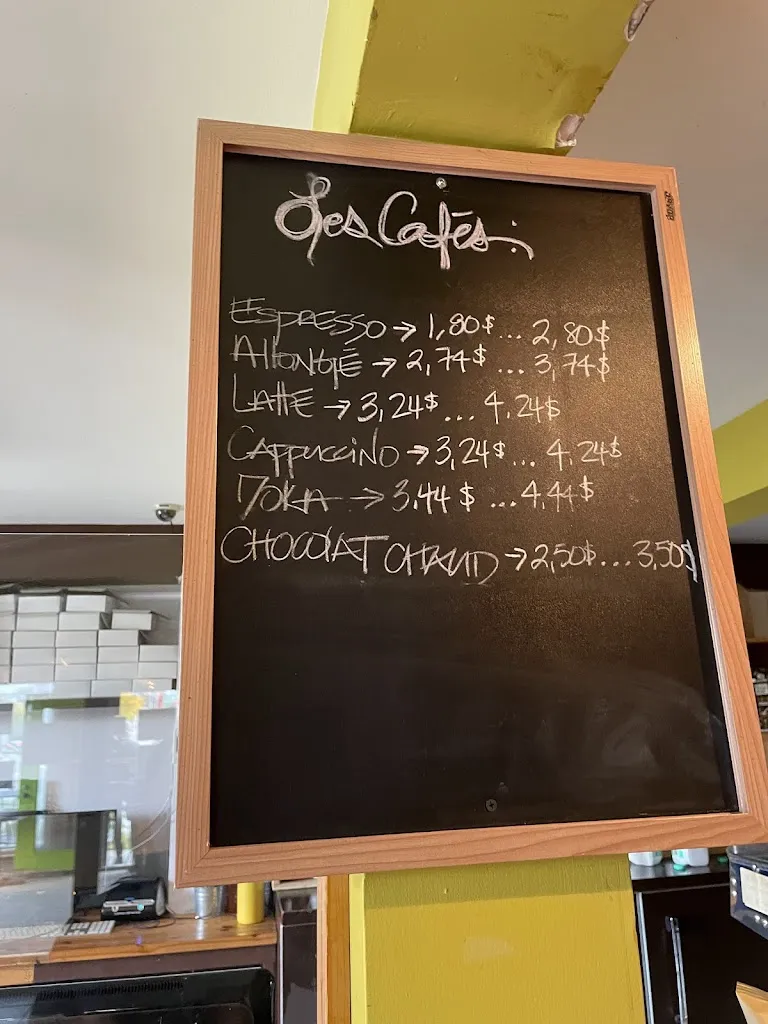 Les Cafés:
ESPRESSO → 1,80$ ... 2,80$
AllONGÉ → 2,74$ ... 3,74$
LATTE → 3,24$ ... 4,24$
CAPPUCCINO → 3,24$ ... 4,24$
MOKA → 3,44$ ... 4,44$
CHOCOLAT CHAUD → 2,50$ ... 3,50$